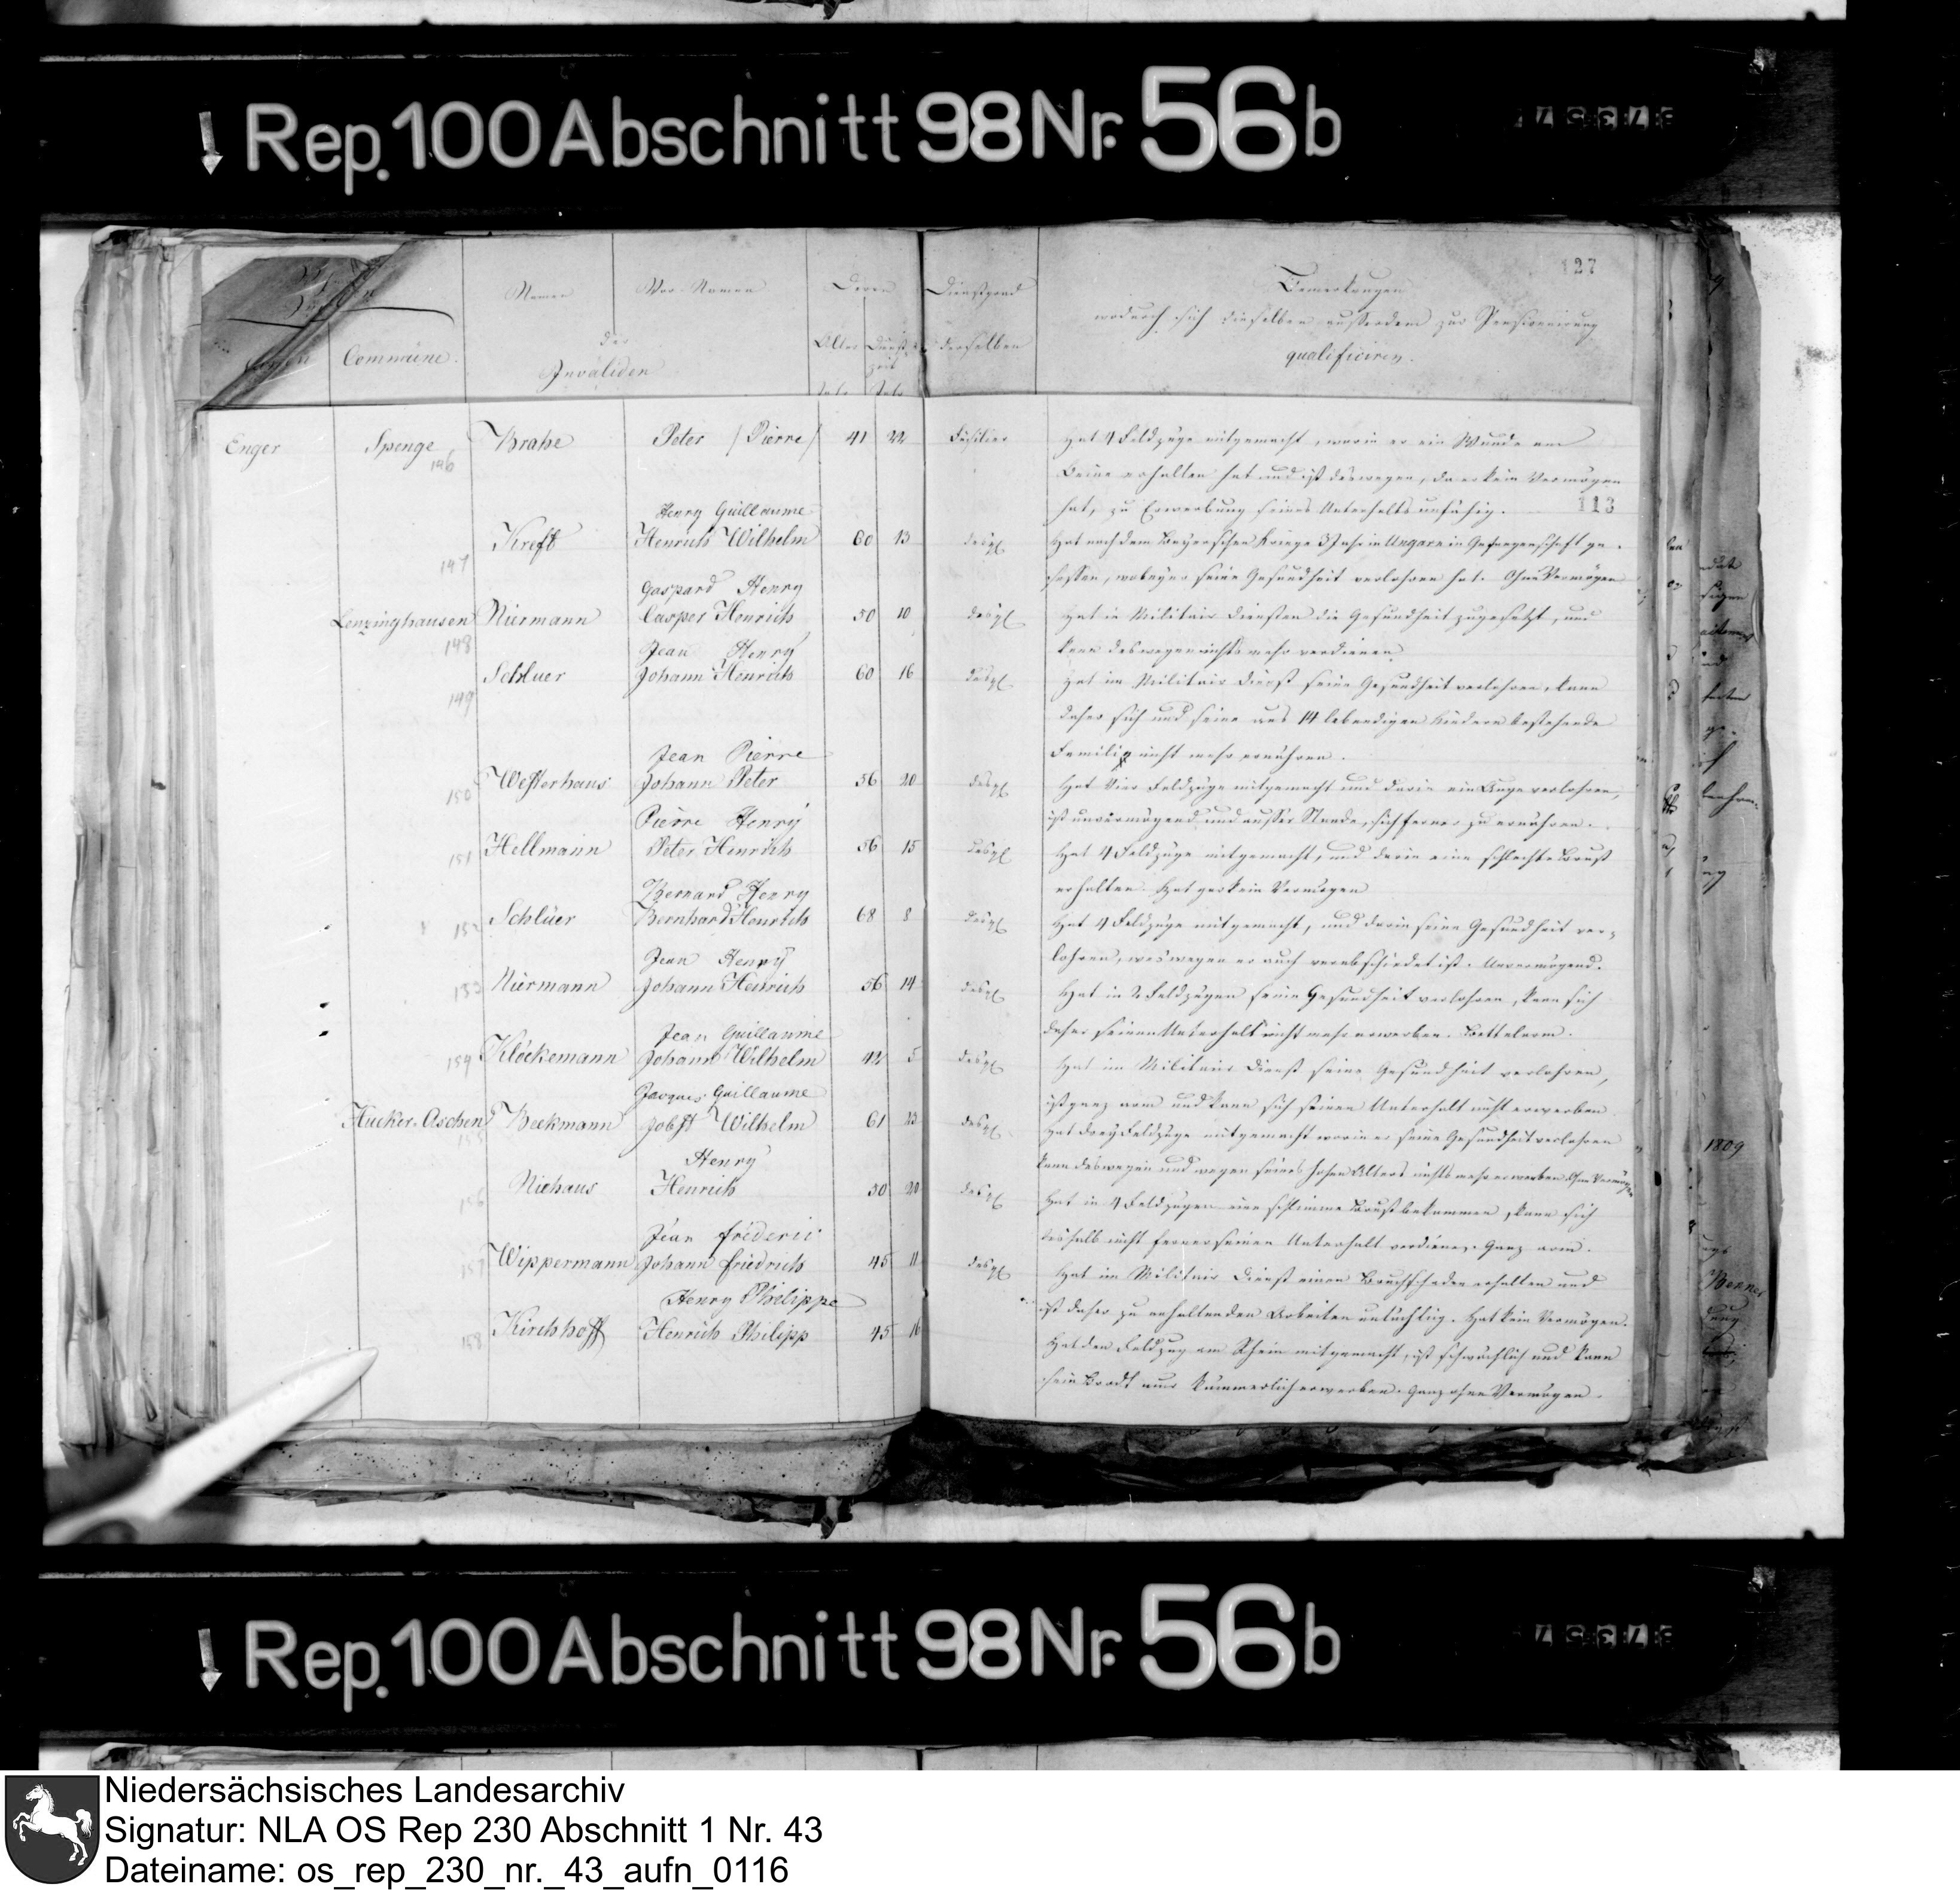 Rep. 100 Abschnitt 98 Nr. 56b
127
Namen
Vor-Namen
Deren
Dienstgrad
Bemerkungen
wodurch sich dieselben ausserdem zur Pensionirung
Commüne.
der
Alter
Dienst-
derselben
zeit
Invaliden
qualificiren.
Enger Spenge Brahe Peter /Pierre/ 41 22 Füsilier Hat 4 Feldzüge mitgemacht, worin er ein Wunde am
146
Beine erhalten hat und ist deswegen, da er kein Vermögen
hat, zu Erwerbung seines Unterhalts unfähig.
113
Henry Guillaume
147 Kreft Henrich Wilhelm 60 13 desgl Hat nach dem Bayerschen Kriege 3 Jahr in Ungarn in Gefangenschaft ge-
sessen, wobey er seine Gesundheit verlohren hat. Ohne Vermögen
Gaspard Henry
Lenzinghausen Niermann Casper Henrich 50 10 desgl Hat in Militair Diensten die Gesundheit zugesetzt, und
148
kann deswegen nichts mehr verdienen.
Jean Henry
149 Schluer Johann Henrich 60 16 desgl Hat im Militair Dienst seine Gesundheit verlohren, kann
daher sich und seine aus 14 lebendigen Kindern bestehende
Familie nicht mehr ernähren.
Jean Pierre
150 Westerhaus Johann Peter 56 20 desgl Hat vier Feldzüge mitgemacht und darin ein Auge verlohren,
ist unvermögend und ausser Stande, sich ferner zu ernähren.
Pierre Henry
151 Hellmann Peter Henrich 56 15 desgl Hat 4 Feldzüge mitgemacht, und darin eine schlechte Brust
erhalten. Hat gar kein Vermögen
Bernard Henry
152 Schlüer Bernhard Henrich 68 8 desgl Hat 4 Feldzüge mitgemacht, und darin seine Gesundheit ver-
lohren, weswegen er auch verabschiedet ist. Unvermögend.
Jean Henry
153 Niermann Johann Henrich 56 14 desgl Hat in 2 Feldzügen seine Gesundheit verlohren, kann sich
daher seinen Unterhalt nicht mehr erwerben. Bettelarm.
Jean Guillaume
154 Klöckemann Johann Wilhelm 42 5 desgl Hat im Militair Dienst seine Gesundheit verlohren,
ist ganz arm und kann sich seinen Unterhalt nicht erwerben
Jacques Guillaume
Hücker-Aschen Beckmann Jobst Wilhelm 61 23 desgl Hat drey Feldzüge mitgemacht worin er seine Gesundheit verlohren
155
kann deswegen und wegen seines hohen Alters nichts mehr erwerben Ohne Vermögen
Henry
156 Niehaus Henrich 50 20 desgl Hat in 4 Feldzügen eine schlimme Brust bekommen, kann sich
deshalb nicht ferner seinen Unterhalt verdienen. Ganz arm.
Jean fréderic
157 Wippermann Johann friedrich 45 11 desgl Hat im Militair Dienst einen Bruchschaden erhalten und
ist daher zu anhaltenden Arbeiten untüchtig. Hat kein Vermögen.
Henry Philippe
158 Kirchhoff Henrich Philipp 45 16 Hat den Feldzug am Rhein mitgemacht, ist schwächlich und kann
sein Brodt nur kümmerlich erwerben. Ganz ohne Vermögen.
1809
Rep. 100 Abschnitt 98 Nr. 56b
Niedersächsisches Landesarchiv
Signatur: NLA OS Rep 230 Abschnitt 1 Nr. 43
Dateiname: os_rep_230_nr._43_aufn_0116